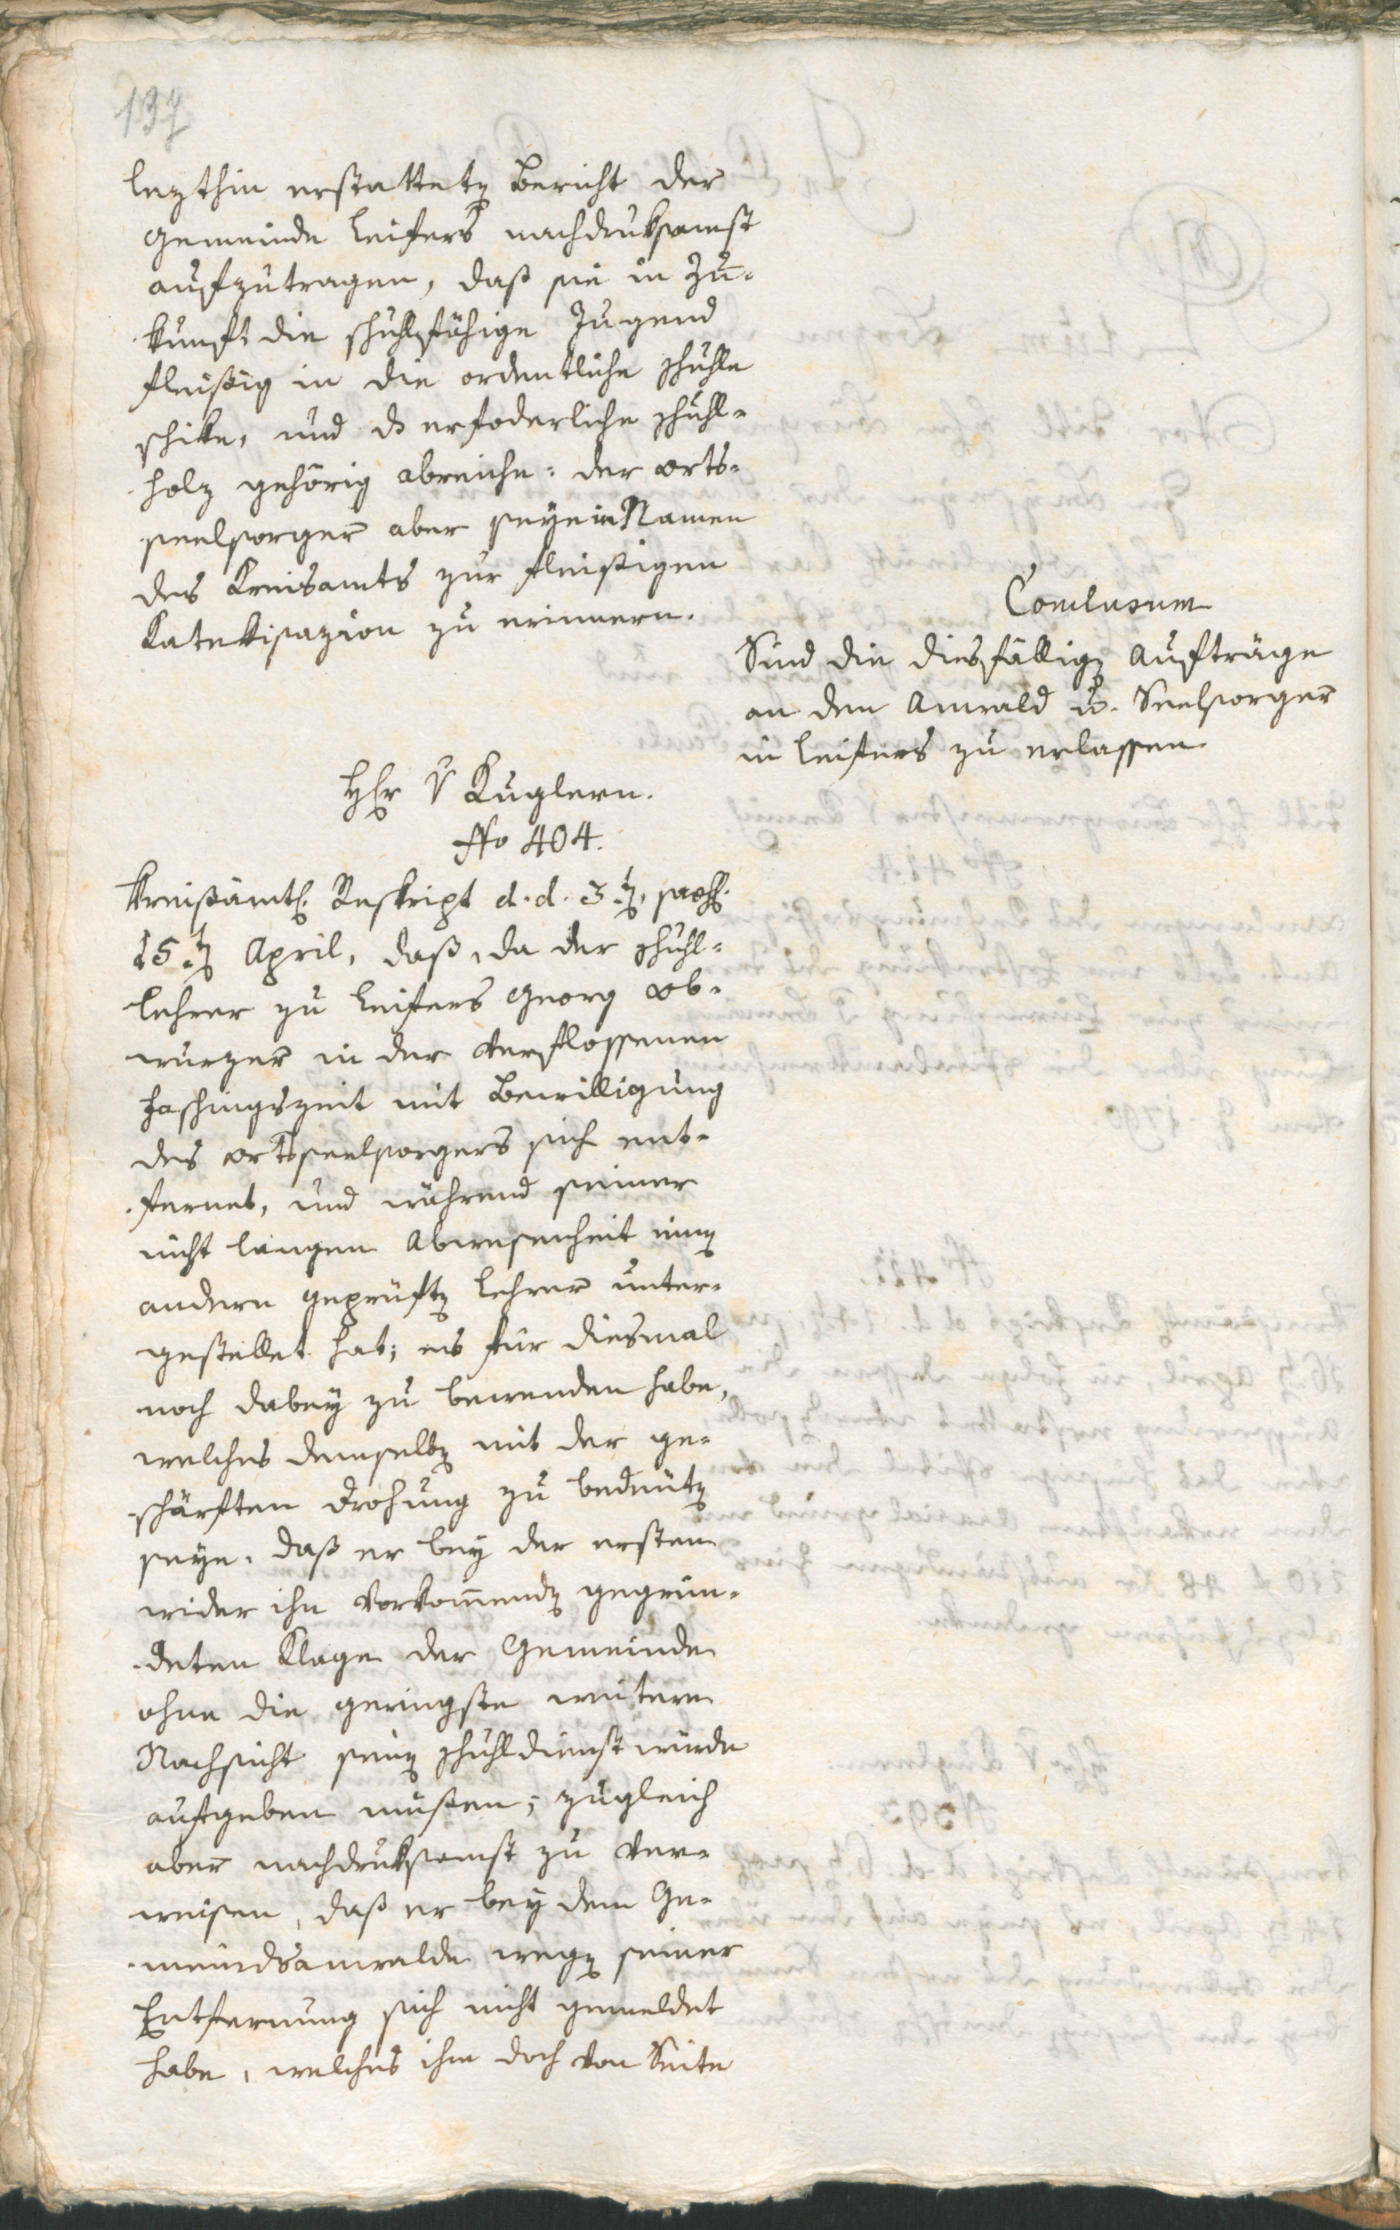 137
lezthin erstatteten Bericht der
Gemeinde Leifers nachdruksamst
aufzutragen, daß sie in Zu-
kunft die schuhlfähige Jugend
fleißig in die ordentliche Schuhle
schike, und ds erfoderliche Schuhl-
holz gehörig abreiche: der Orts-
seelsorger aber seye in Namen
des Kreisamts zur fleißigen
Katekisazion zu erinnern.
Conclusum
Sind die diesfälligen Aufträge
an den Anwald u. Seelsorger
in Leifers zu erlassen.
Hr v Kuglern.
No 404.
Kreißämtl. Reskript d. d. 3ten, praes.
15ten April, daß, da der Schuhl-
lehrer zu Leifers Georg Ob-
wurzer in der verflossenen
Faschingszeit mit Bewilligung
des Ortsseelsorgers sich ent-
fernet, und während seiner
nicht langen Abwesenheit einen
andern geprüften Lehrer unter-
gestellet hat; es für diesmal
noch dabey zu bewenden habe,
welches demselben mit der ge-
schärften Drohung zu bedeuten
seye. daß er bey der ersten
wider ihn vorkommenden gegrün-
deten Klage der Gemeinde
ohne die geringste weitere
Nachsicht seinen Schuhldienst würde
aufgeben müßen; zugleich
aber nachdruksamst zu ver-
weisen, daß er bey dem Ge-
meindsanwalde wegen seiner
Entfernung sich nicht gemeldet
habe, welches ihm doch von Seite